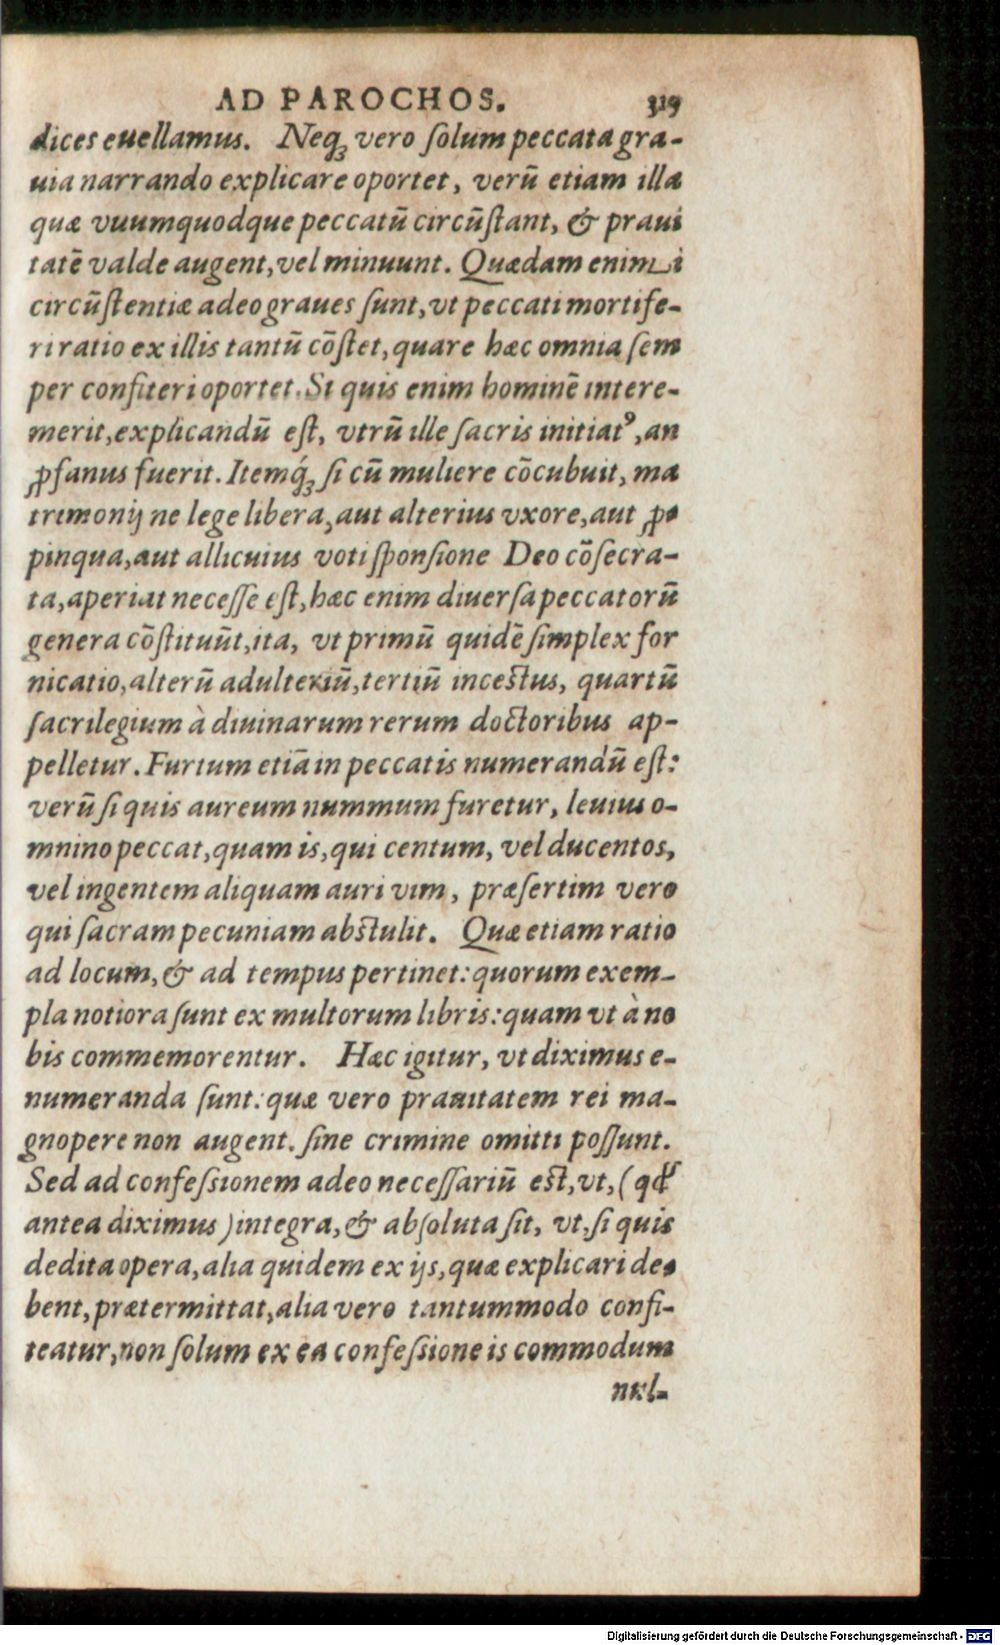 AD PAROCHOS. 319
dices euellamus. Neqꝫ vero ſolum peccata gra-
uia narrando explicare oportet, verū etiam illa
quæ vuumquodque peccatū circūſtant, & praui
tatē valde augent, vel minuunt. Quædam enim i
circūſtentiæ adeo graues ſunt, vt peccati mortife-
ri ratio ex illis tantū cōſtet, quare hæc omnia ſem
per confiteri oportet. Si quis enim hominē intere-
merit, explicandū eſt, vtrū ille ſacris initiatꝰ, an
ꝓfanus fuerit. Itemq́ꝫ ſi cū muliere cōcubuit, ma
trimonij ne lege libera, aut alterius vxore, aut ꝓo
pinqua, aut allicuius voti ſponſione Deo cōſecra-
ta, aperiat neceſſe eſt, hæc enim diuerſa peccatorū
genera cōſtituūt, ita, vt primū quidē ſimplex for
nicatio, alterū adulteriū, tertiū inceſtus, quartū
ſacrilegium à diuinarum rerum doctoribus ap-
pelletur. Furtum etiā in peccatis numerandū eſt:
verū ſi quis aureum nummum furetur, leuius o-
mnino peccat, quam is, qui centum, vel ducentos,
vel ingentem aliquam auri vim, præſertim vero
qui ſacram pecuniam abſtulit. Quæ etiam ratio
ad locum, & ad tempus pertinet: quorum exem-
pla notiora ſunt ex multorum libris: quam vt à no
bis commemorentur. Hæc igitur, vt diximus e-
numeranda ſunt: quæ vero prauitatem rei ma-
gnopere non augent. ſine crimine omitti poſſunt.
Sed ad confeſsionem adeo neceſſariū eſt, vt, (qđ
antea diximus) integra, & abſoluta ſit, vt, ſi quis
dedita opera, alia quidem ex ijs, quæ explicari de-
bent, prætermittat, alia vero tantummodo confi-
teatur, non ſolum ex ea confeſsione is commodum
nul-
Digitalisierung gefördert durch die Deutsche Forschungsgemeinschaft - DFG